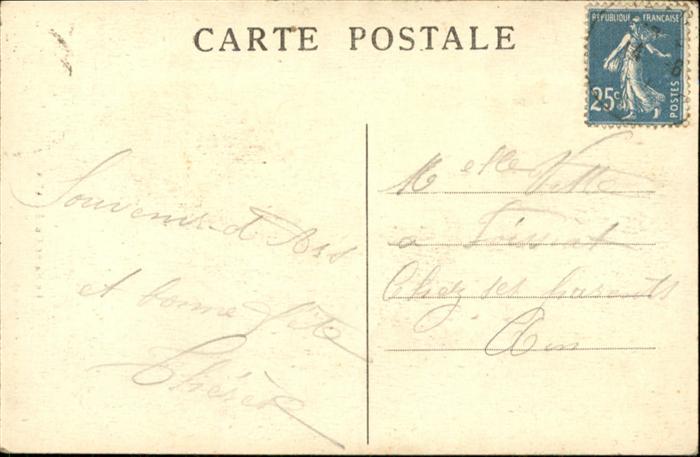 CARTE POSTALE
RÉPUBLIQUE FRANÇAISE
25c
POSTES
Souvenir d'Ars
et bonne fête
Thérèse
Melle
a
Chez ses parents
Ain